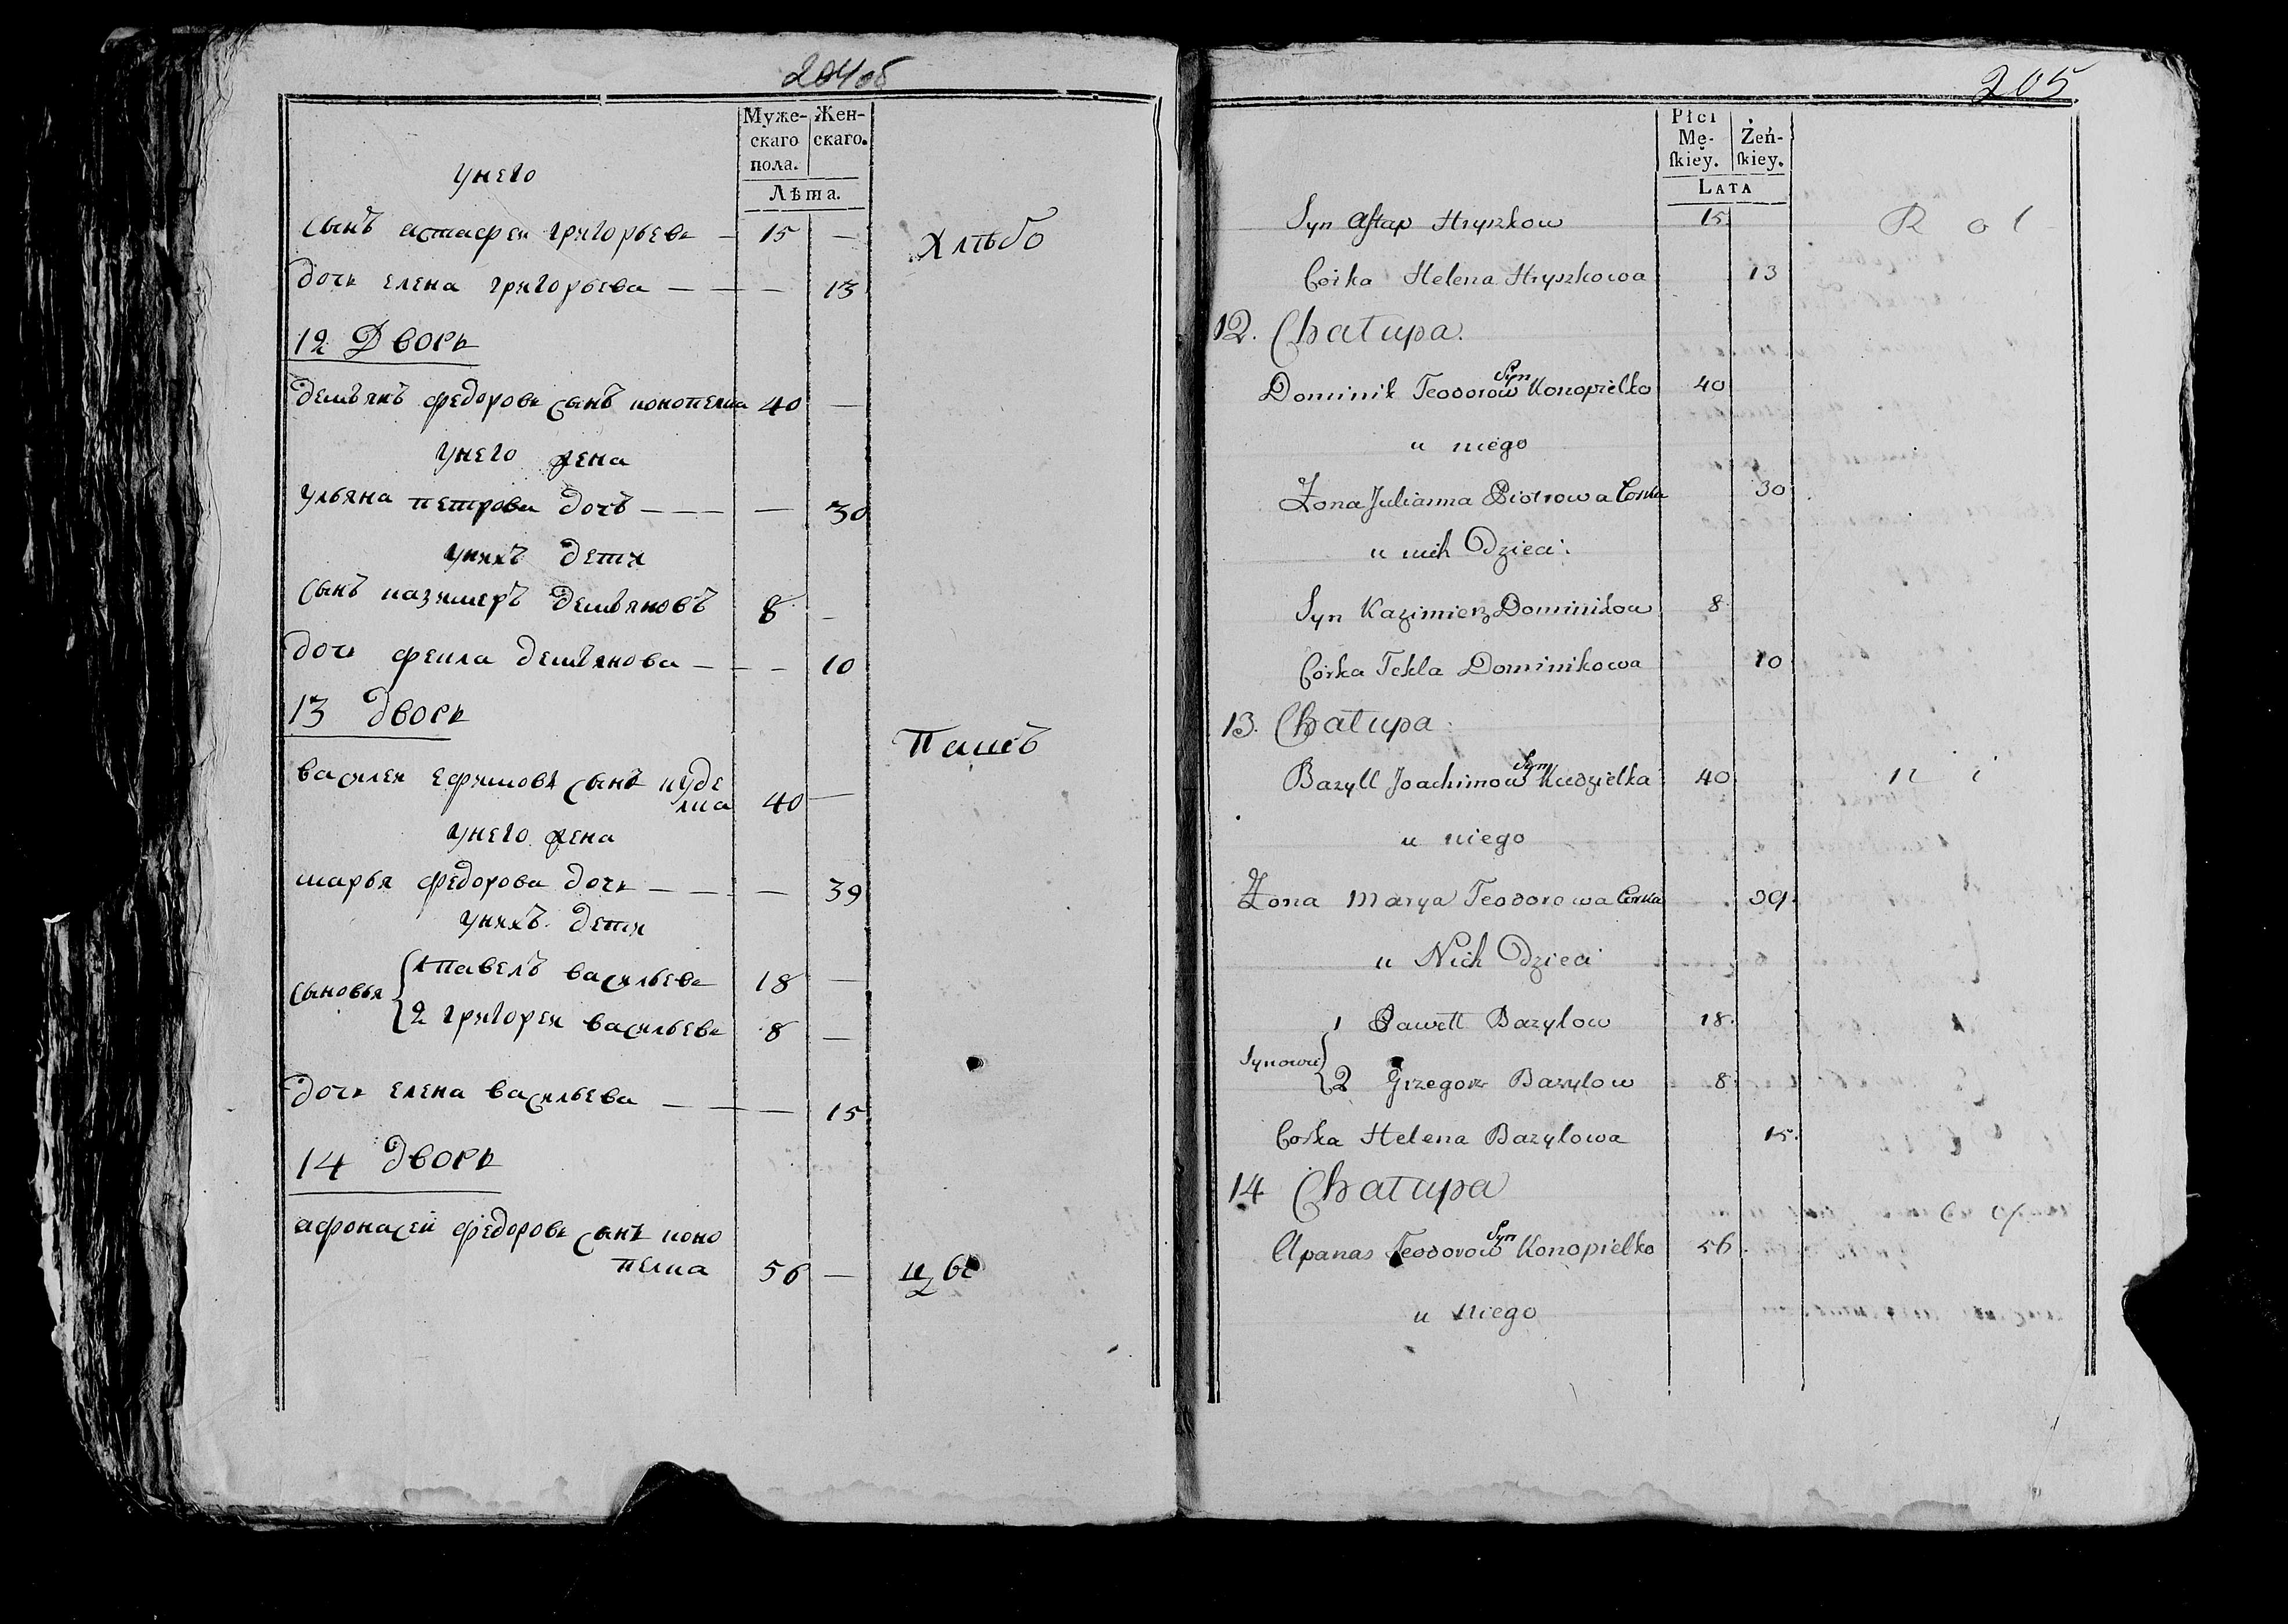 204об
Муже-
скаго
пола.
Жен-
скаго.
Лѣта.
унего
сынъ астафеи григорьевъ — 15 —
Хлѣбо
дочь елена григорьева — — — 13
12 Дворъ
демьянъ федоровъ сынъ конопелка 40 —
унего жена
ульяна петрова дочь — — — — 30
унихъ дети
сынъ казимеръ демьяновъ 8 —
дочь фекла демьянова — — — 10
13 дворъ
Пашеъ
василеи ефимовъ сынъ куде
лка 40 —
унего жена
марья федорова дочь — — — — 39
унихъ дети
сыновья { 1 павелъ васильевъ 18 —
2 григореи васильевъ 8 —
дочь елена васильева — — — 15
14 дворъ
афонасей федоровъ сынъ коно
пелка 56 —
205.
Płci
Mę-
ſkiey.
Żeń-
ſkiey.
LATA
Syn Aſtap Hryszkow 15.
R o l
Corka Helena Hryszkowa 13
12. Chałupa.
Dominik Teodorow Syn Konopielko 40
u niego
Zona Julianna Piotrowa Corka 30
u nich Dzieci:
Syn Kazimierz Dominikow 8
Córka Tekla Dominikowa 10
13. Chałupa.
Bazyll Joachimow Syn Kudzielka 40
n i
u niego
Zona Marya Teodorowa Corka 39.
u Nich Dzieci
1 Pawełł Bazylow 18.
Synowie { 2 Grzegorz Bazylow 8
Corka Helena Bazylowa 15.
14 Chałupa
Apanas Teodorow Syn Konopielko 56.
u niego